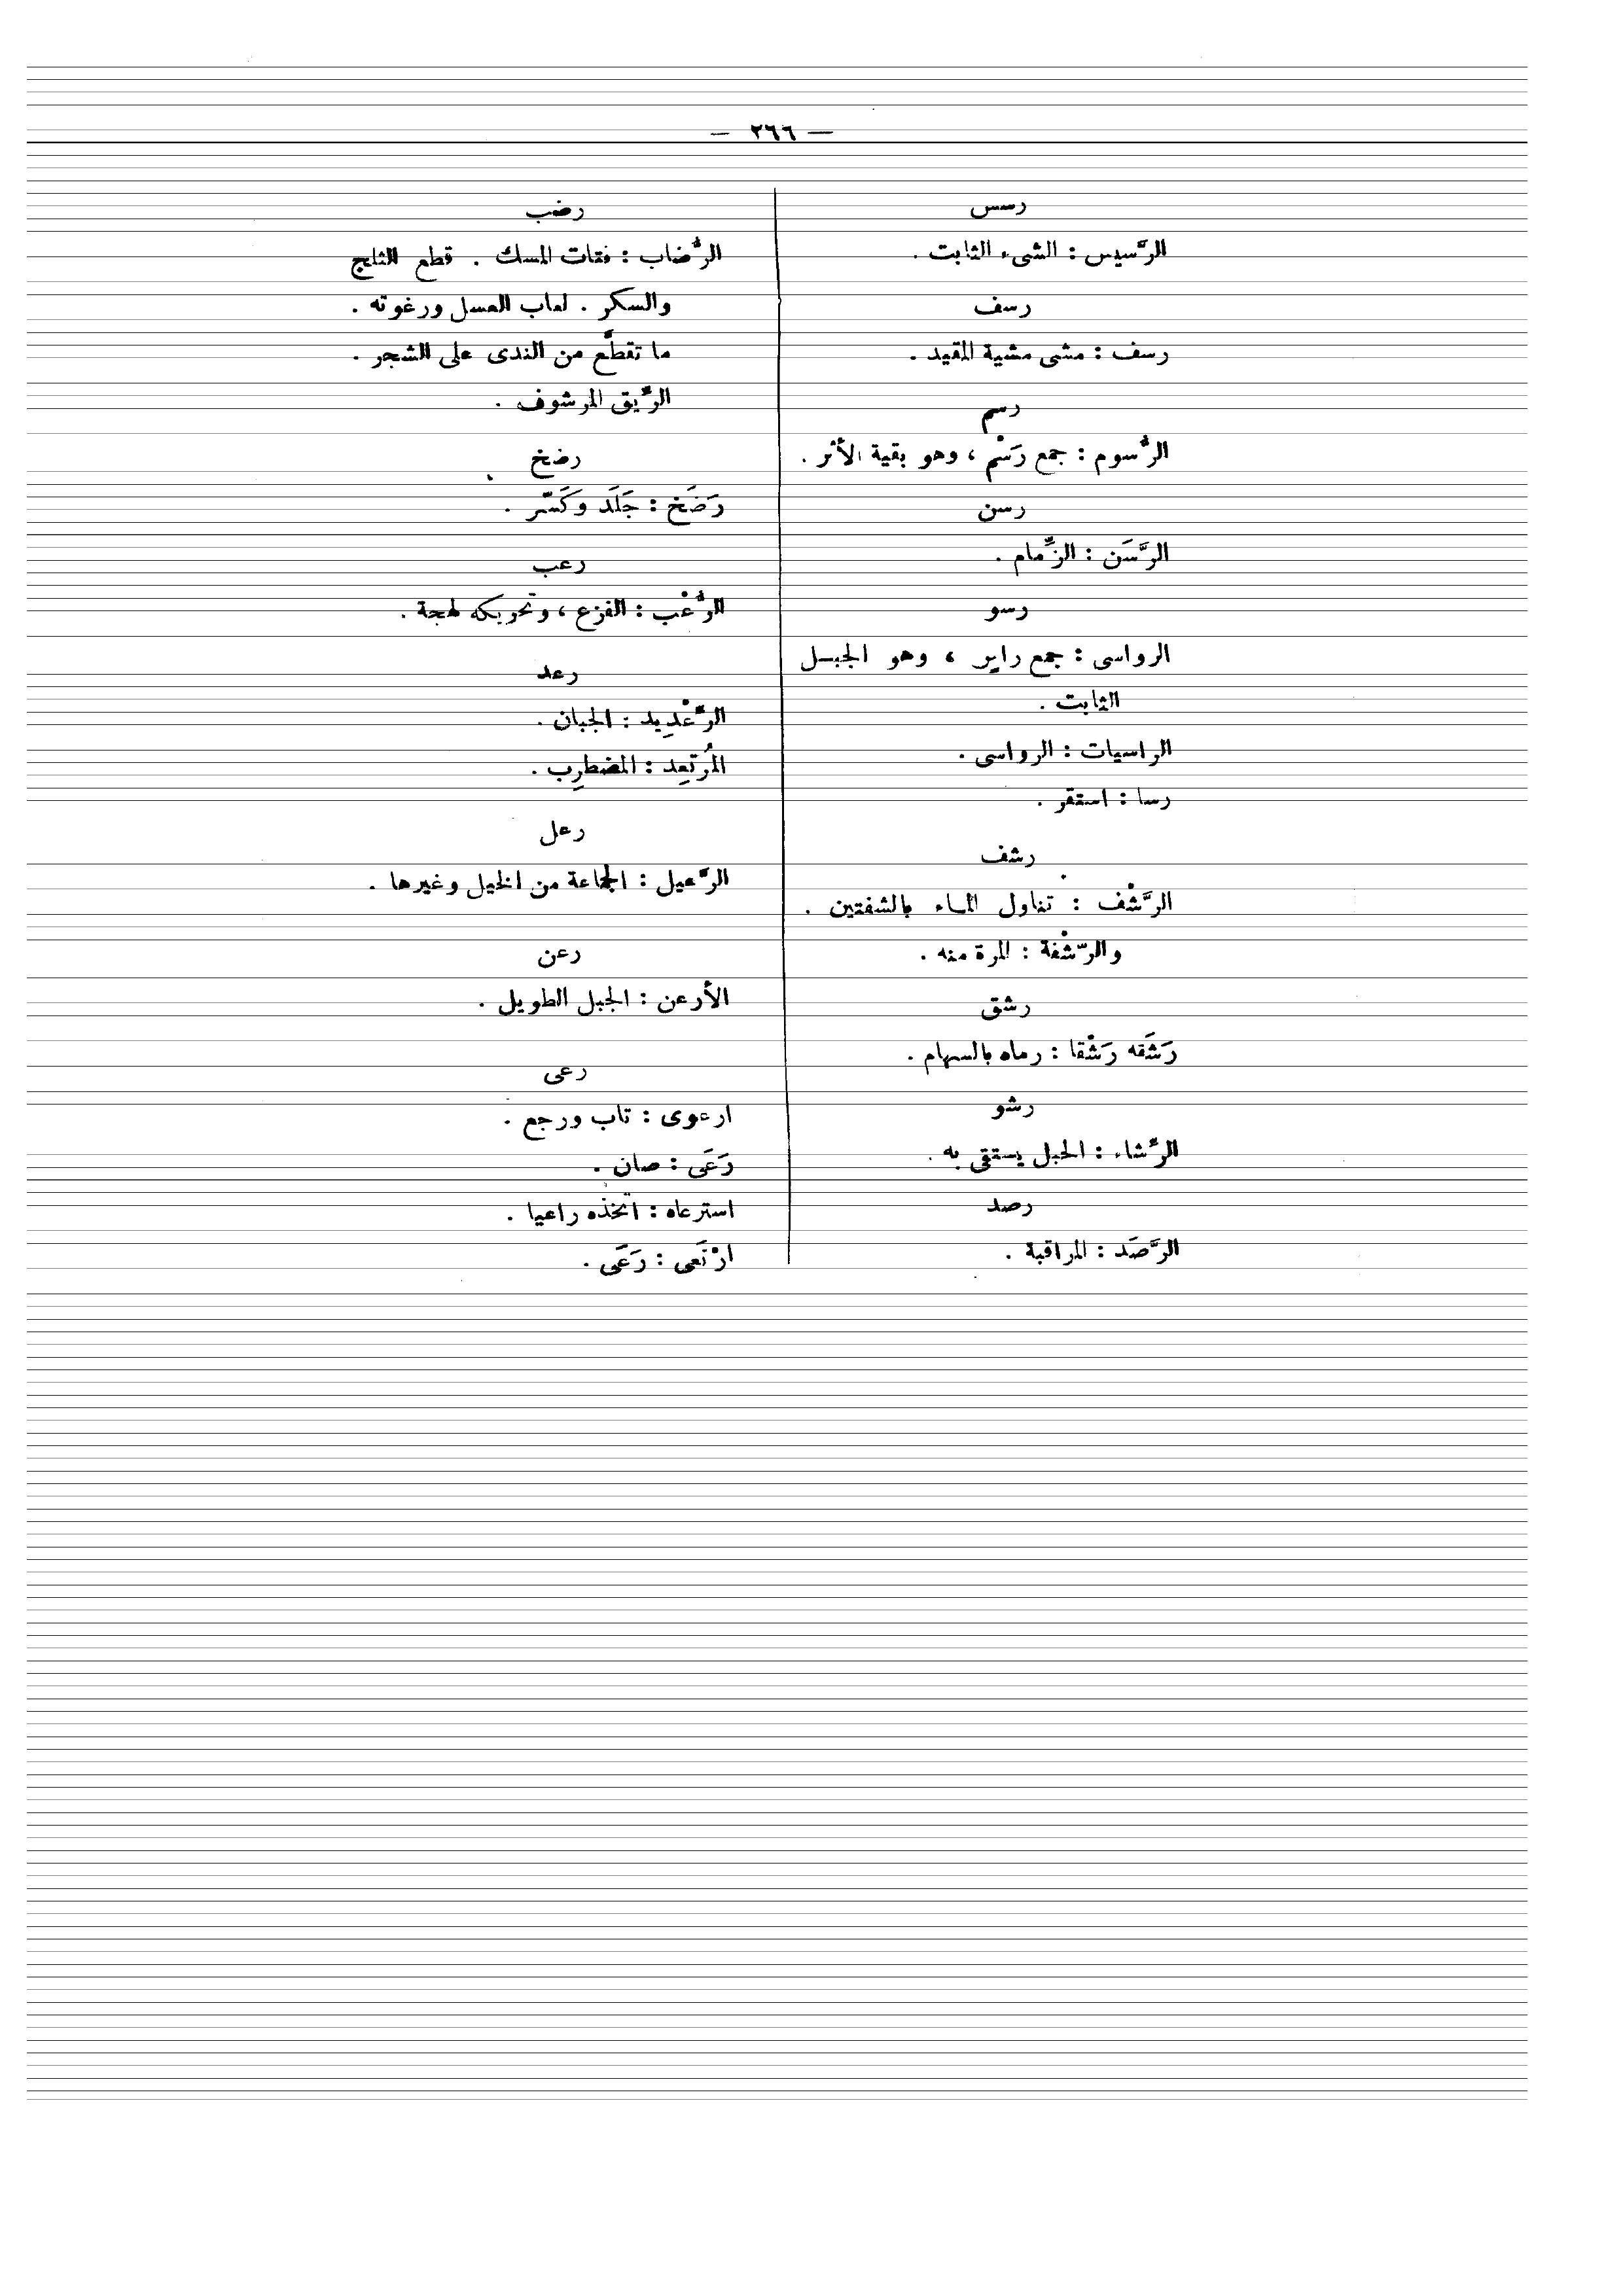 — ٢٦٦ —
رسس
الرَّسيس : الشىء الثابت .
رسف
رسف : مشى مشية المقيد .
رسم
الرُّسوم : جمع رَسْم ، وهو بقية الأثر .
رسن
الرَّسَن : الزِّمام .
رسو
الرواسى : جمع راسٍ ، وهو الجبل
الثابت .
الراسيات : الرواسى .
رسا : استقر .
رشف
الرَّشْف : تناول الماء بالشفتين .
والرَّشْفة : المرة منه .
رشق
رَشَقه رَشْقا : رماه بالسهام .
رشو
الرِّشاء : الحبل يستقى به .
رصد
الرَّصَد : المراقبة .
رضب
الرُّضاب : فتات المسك . قطع الثلج
والسكر . لعاب العسل ورغوته .
ما تقطَّع من الندى على الشجر .
الرِّيق المرشوف .
رضخ
رَضَخ : جَلَد وَكَسَّر .
رعب
الرُّعْب : الفزع ، وتحريكه لهجة .
رعد
الرِّعْدِيد : الجبان .
المُرتعِد : المضطرِب .
رعل
الرَّعيل : الجماعة من الخيل وغيرها .
رعن
الأرعن : الجبل الطويل .
رعى
ارعوى : تاب ورجع .
رَعَى : صان .
استرعاه : اتخذه راعيا .
ارْتَعى : رَعَى .